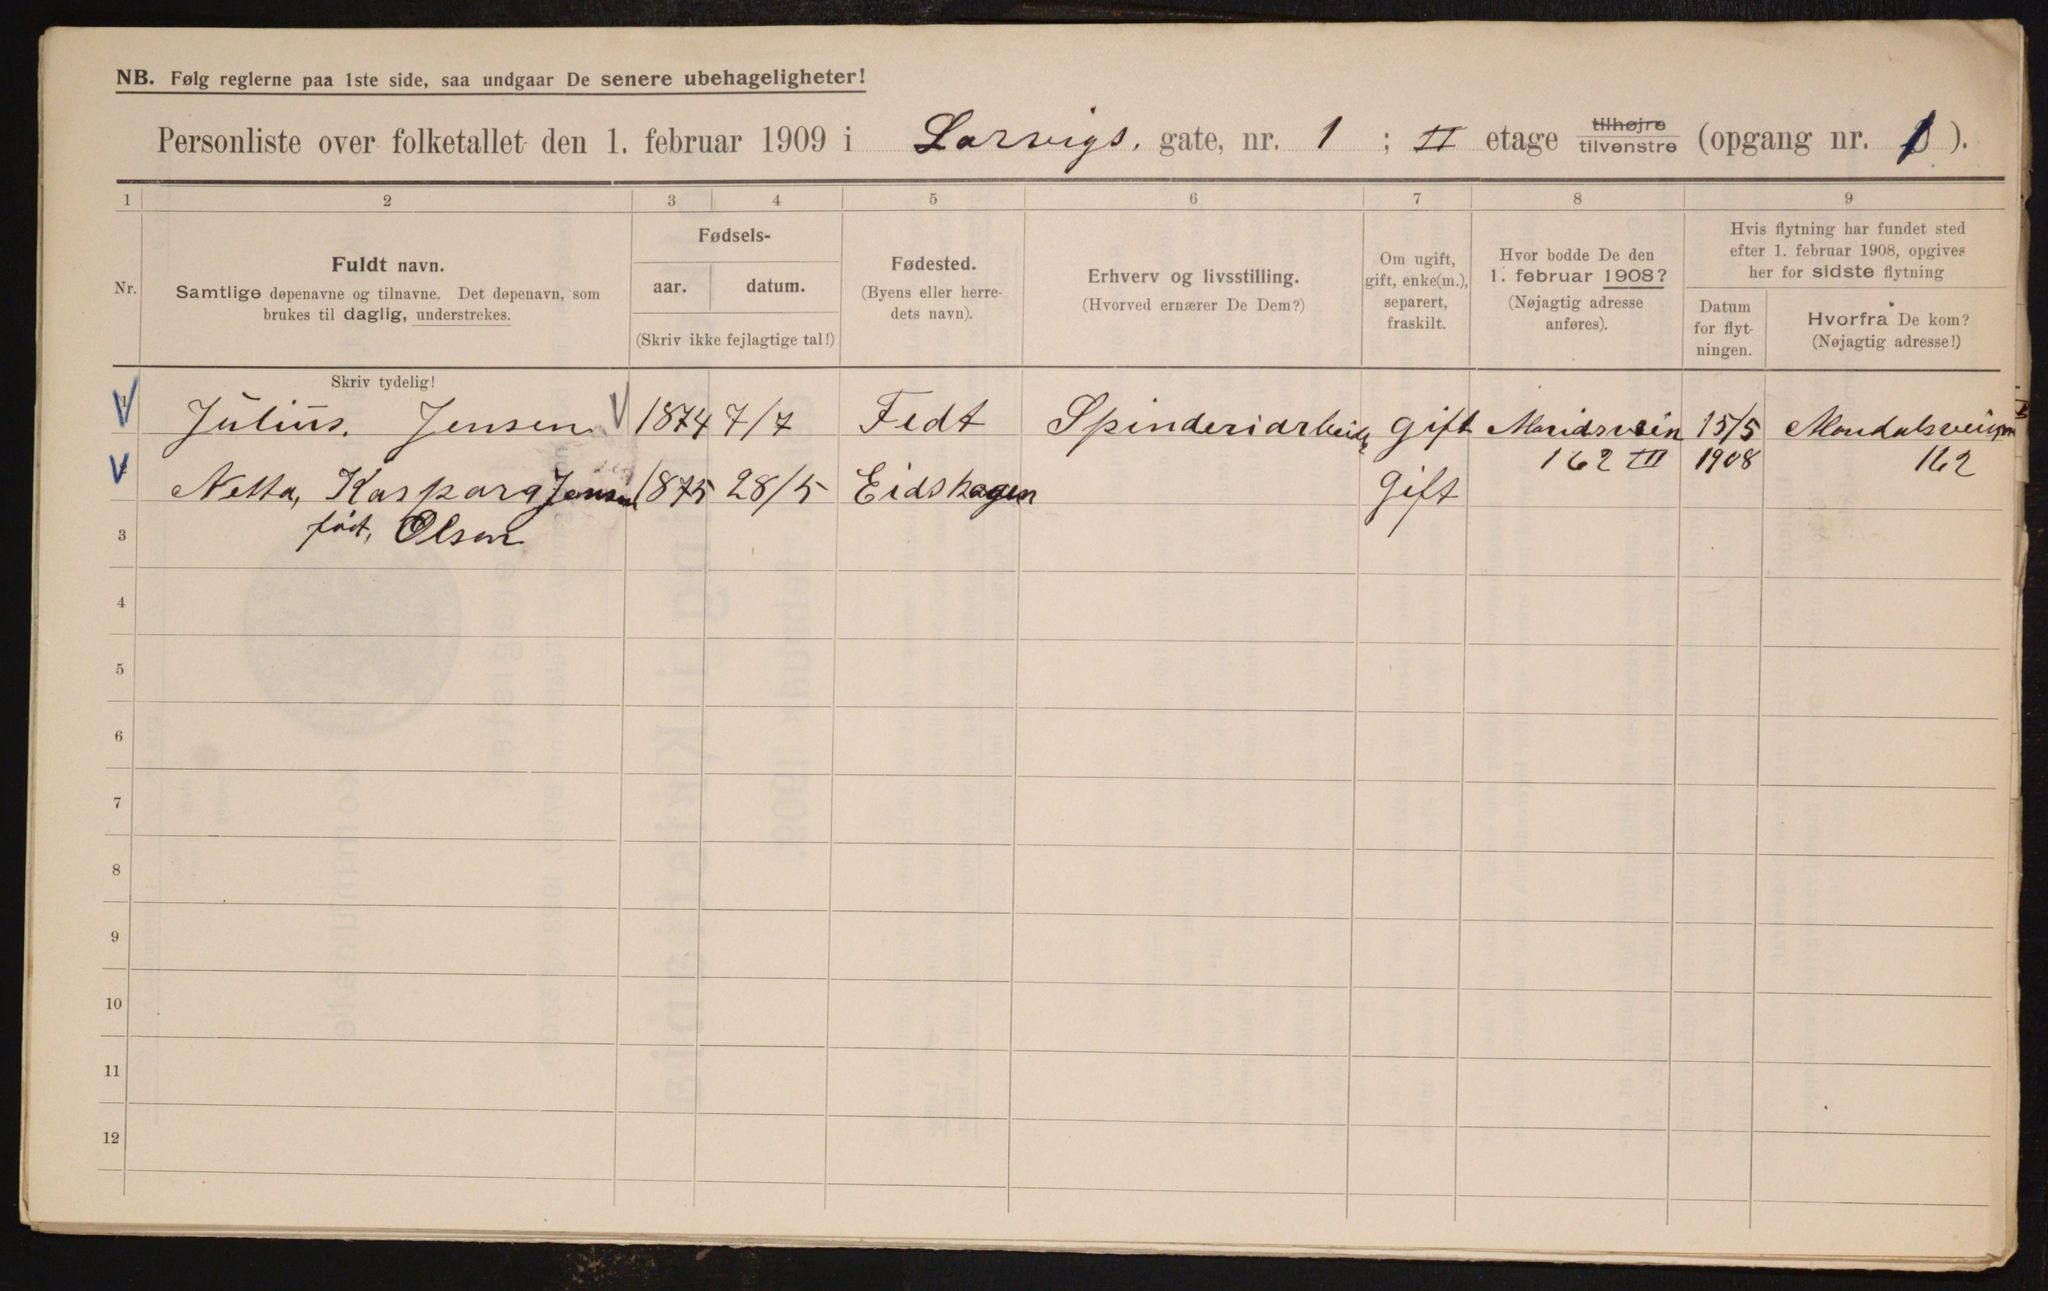 NB. Følg reglerne paa 1ste side, saa undgaar De senere ubehageligheter!
Personliste over folketallet den 1. februar 1909 i Larvigs. gate, nr. 1 ; II etage tilhøjre tilvenstre (opgang nr. ).
1 2 3 4 5 6 7 8 9
Nr.
Fuldt navn.
Samtlige døpenavne og tilnavne. Det døpenavn, som
brukes til daglig, understrekes.
Fødsels-
aar. datum.
(Skriv ikke fejlagtige tal!)
Fødested.
(Byens eller herre-
dets navn).
Erhverv og livsstilling.
(Hvorved ernærer De Dem?)
Om ugift,
gift, enke(m.),
separert,
fraskilt.
Hvor bodde De den
1. februar 1908?
(Nøjagtig adresse
anføres).
Hvis flytning har fundet sted
efter 1. februar 1908, opgives
her for sidste flytning
Datum
for flyt-
ningen.
Hvorfra De kom?
(Nøjagtig adresse!)
Skriv tydelig!
1 Julius. Jensen 1874 7/7 Fedt Spinderiarbeide gift Maridsvein 15/5
162 III 1908 162
Netta, Kaspara Jensen 1875 28/5 Eidskogen Gift
3 født, Olsen
4
5
6
7
8
9
10
11
12